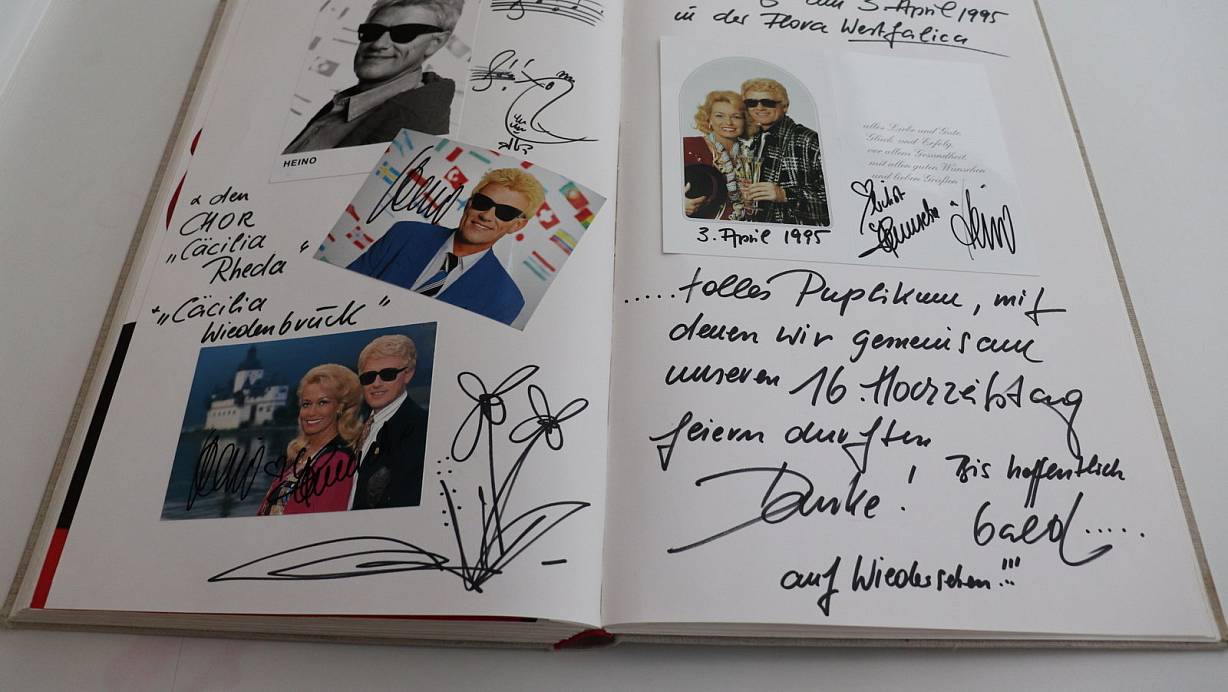 HEINO
a den
CHOR
„Cäcilia
Rheda“
+ „Cäcilia
Wiedenbrück"
Heino
Heino
Hannelore
3. April 1995
in der Flora Westfalica
alles Liebe und Gute,
Glück und Erfolg,
vor allem Gesundheit
mit allen guten Wünschen
und lieben Grüßen
Heino
3. April 1995
.....tolles Puplikum, mit
denen wir gemeinsam
unseren 16. Hochzeitstag
feiern durften
Danke! Bis hoffentlich
bald.....
auf Wiedersehen!!!